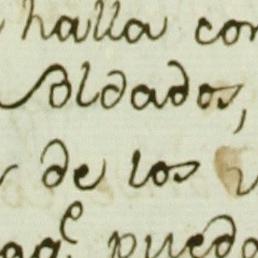 halla con
soldados,
de los
pueda